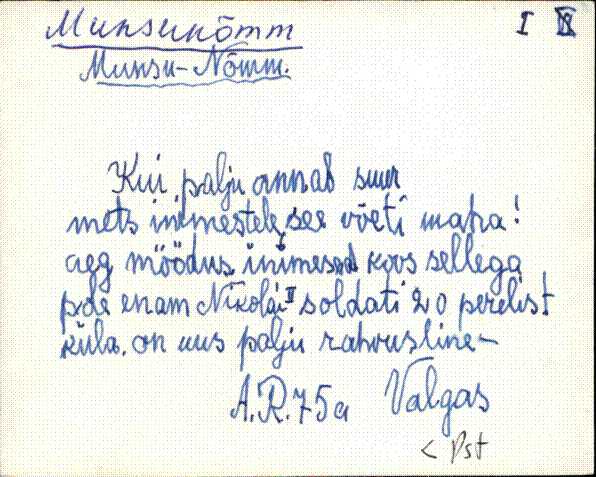 Munsunõmm
I II
Munsu-Nõmm.
Kui palju annab suur
mets inimestele, see võeti maha!
aeg möödus inimesed koos sellega
pole enam Nikolai II soldati 20 perelist
küla. on uus palju rahvusline-
A.R. 75a Valgas
< Pst